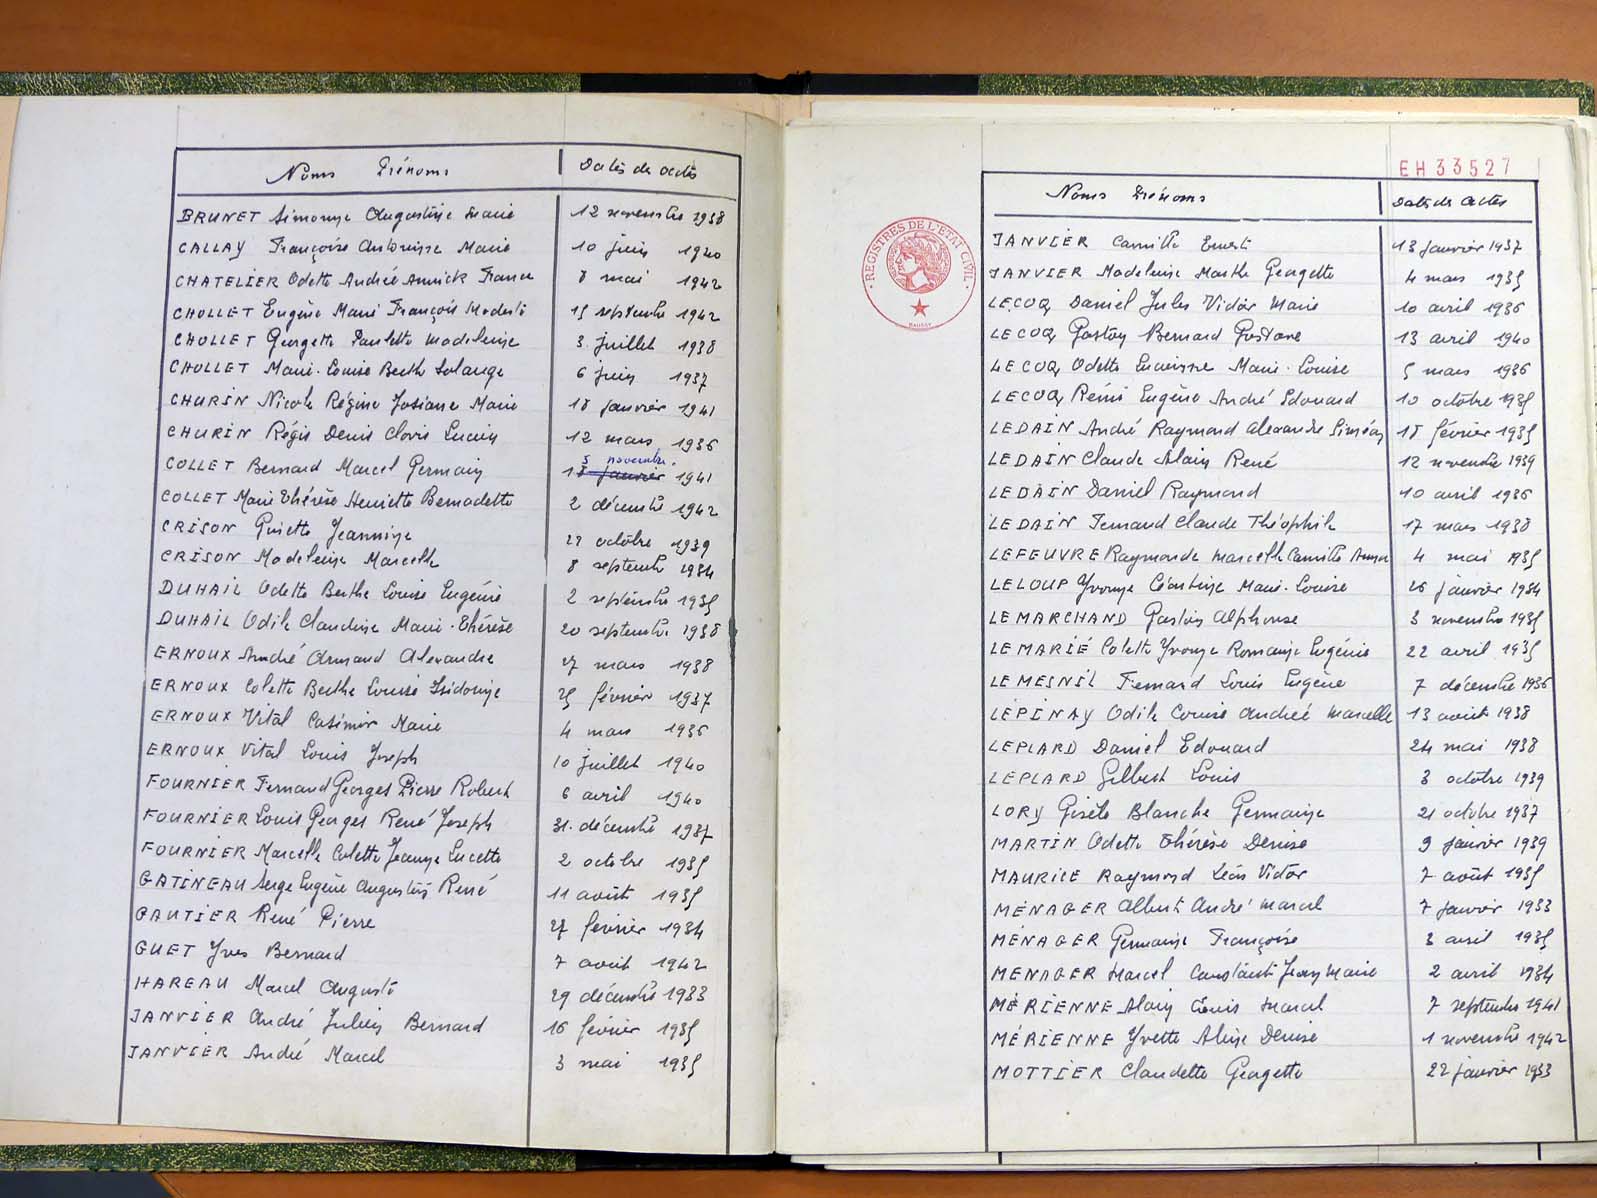 Noms Prénoms Dates des actes
BRUNET Simonne Augustine Marie 12 novembre 1938
CALLAY Françoise Antoinise Marie 10 juin 1940
CHATELIER Odette Andrée Annick France 8 mai 1942
CHOLLET Eugène Marie François Modeste 15 septembre 1942
CHOLLET Georgette Paulette Madeleine 3 juillet 1938
CHOLLET Marie-Louise Berthe Solange 6 juin 1937
CHURIN Nicole Régine Josiane Marie 18 janvier 1941
CHURIN Régis Denis Clovis Lucien 12 mars 1936
5 novembre.
COLLET Bernard Marcel Germain 18 janvier 1941
COLLET Marie Thérèse Henriette Bernadette 2 décembre 1942
CRISON Ginette Jeannine octobre 1939
CRISON Madeleine Marcelle 8 septembre 1934
DUHAIL Odette Berthe Louise Eugénie 2 septembre 1935
DUHAIL Odile Claudine Marie-Thérèse 20 septembre 1938
ERNOUX André Armand Alexandre 27 mars 1938
ERNOUX Colette Berthe Louise Isidonie 25 février 1937
ERNOUX Vital Casimir Marie 4 mars 1936
ERNOUX Vital Louis Joseph 10 juillet 1940
FOURNIER Fernand Georges Pierre Robert 6 avril 1940
FOURNIER Louis Georges René Joseph 31 décembre 1937
FOURNIER Marcelle Colette Jeanne Lucette 2 octobre 1935
GATINEAU Serge Eugène Augustin René 11 août 1935
GAUTIER René Pierre 27 février 1934
GUET Yves Bernard 7 août 1942
HAREAU Marcel Auguste 29 décembre 1933
JANVIER André Julien Bernard 16 février 1935
JANVIER André Marcel 3 mai 1935
EH33527
REGISTRES DE L'ETAT CIVIL
Noms Prénoms Dates des actes
JANVIER Camille Ernest 13 janvier 1937
JANVIER Madeleine Marthe Georgette 4 mars 1935
LECOQ Daniel Jules Victor Marie 10 avril 1936
LECOQ Gaston Bernard Gustave 13 avril 1940
LECOQ Odette Lucienne Marie-Louise 5 mars 1936
LECOQ Rémi Eugène André Edouard 10 octobre 1935
LEDAIN André Raymond Alexandre Siméon 18 février 1935
LEDAIN Claude Alain René 12 novembre 1939
LEDAIN Daniel Raymond 10 avril 1936
LEDAIN Fernand Claude Théophile 17 mars 1938
LEFEUVRE Raymonde Marcelle Camille 4 mai 1935
LELOUP Yvonne Léontine Marie-Louise 26 janvier 1934
LEMARCHAND Gaston Alphonse 3 novembre 1935
LEMARIÉ Colette Yvonne Romaine Eugénie 22 avril 1935
LEMESNIL Fernand Louis Eugène 7 décembre 1936
LÉPINAY Odile Louise Andrée Marcelle 13 août 1938
LEPLARD Daniel Edouard 24 mai 1938
LEPLARD Gilbert Louis 3 octobre 1939
LORY Gisèle Blanche Germaine 21 octobre 1937
MARTIN Odette Thérèse Denise 9 janvier 1939
MAURICE Raymond Léon Victor 7 août 1935
MÉNAGER Albert André Marcel 7 janvier 1933
MÉNAGER Germaine Françoise 3 avril 1935
MENAGER Marcel Constant Jean Marie 2 avril 1934
MÉRIENNE Alain Louis Marcel 7 septembre 1941
MÉRIENNE Yvette Aline Denise 1 novembre 1942
MOTTIER Claudette Georgette 22 janvier 1933